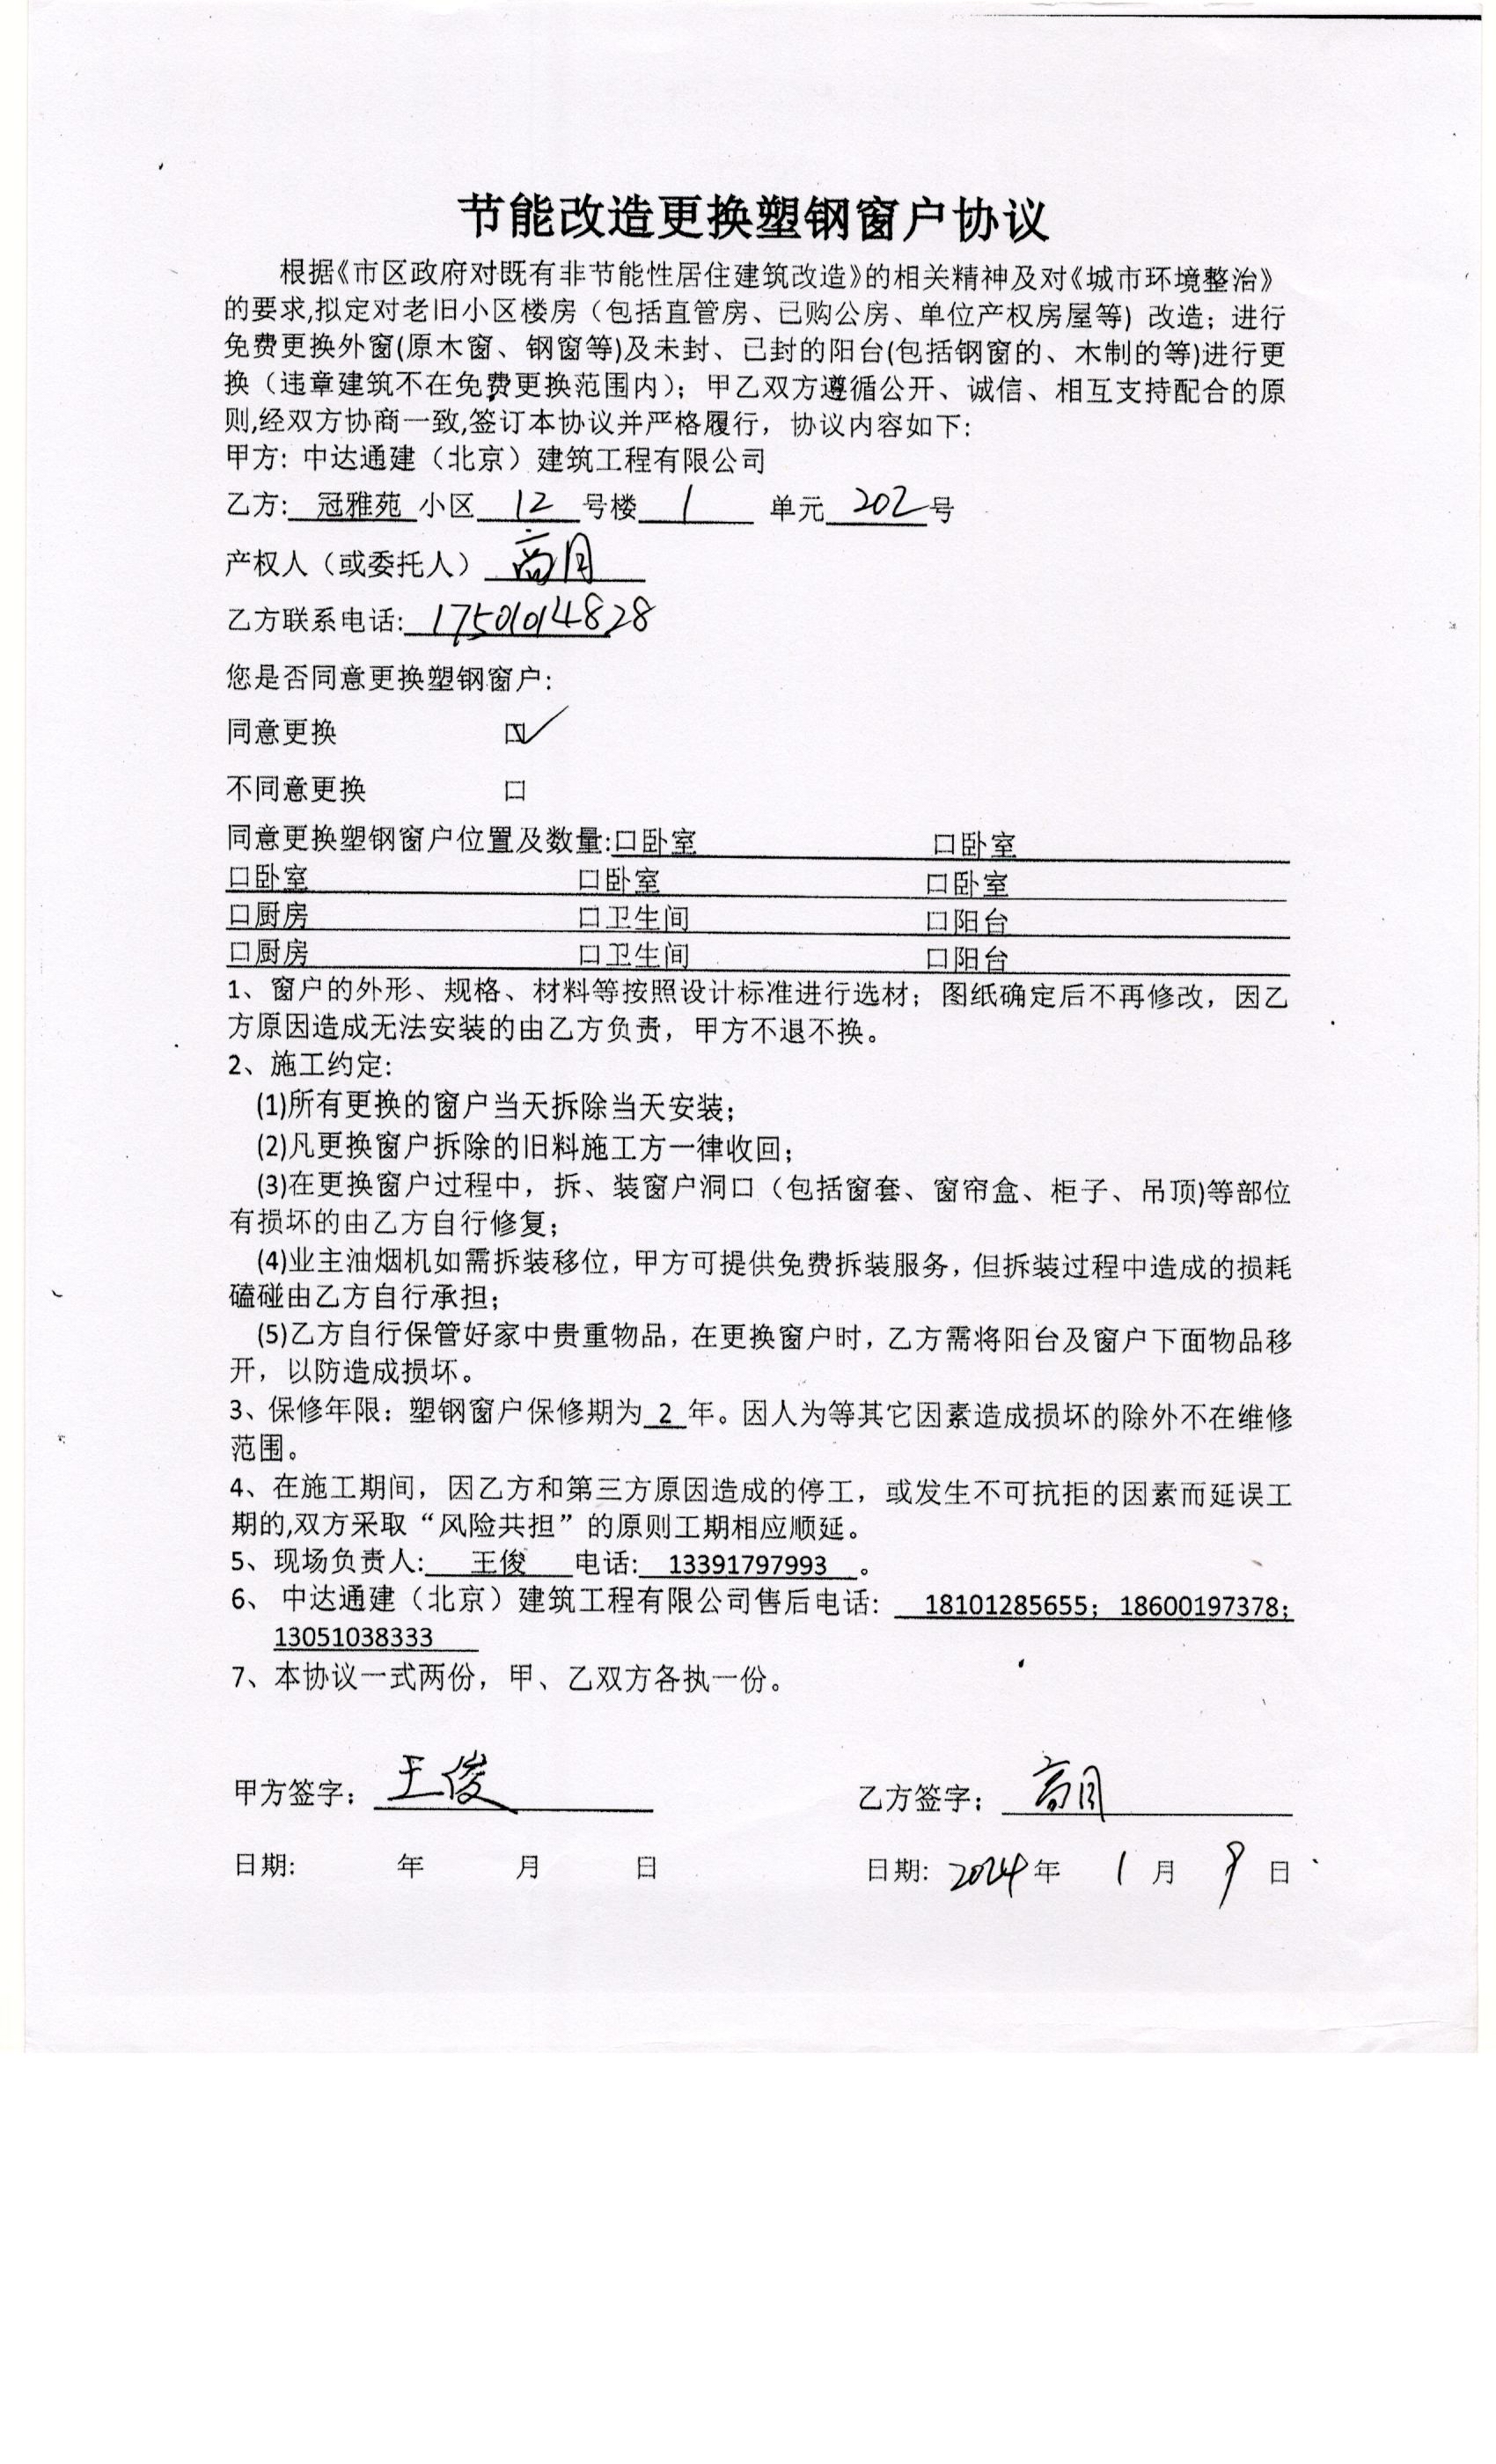 节能改造更换塑钢窗户协议
根据《市区政府对既有非节能性居住建筑改造》的相关精神及对《城市环境整治》
的要求,拟定对老旧小区楼房（包括直管房、已购公房、单位产权房屋等）改造；进行
免费更换外窗(原木窗、钢窗等)及未封、已封的阳台(包括钢窗的、木制的等)进行更
换（违章建筑不在免费更换范围内）；甲乙双方遵循公开、诚信、相互支持配合的原
则,经双方协商一致,签订本协议并严格履行，协议内容如下:
甲方: 中达通建（北京）建筑工程有限公司
乙方: 冠雅苑 小区 12 号楼 1 单元 202 号
产权人（或委托人） 高月
乙方联系电话: 17501014828
您是否同意更换塑钢窗户:
同意更换 ☑
不同意更换 口
同意更换塑钢窗户位置及数量:口卧室 口卧室
口卧室 口卧室 口卧室
口厨房 口卫生间 口阳台
口厨房 口卫生间 口阳台
1、窗户的外形、规格、材料等按照设计标准进行选材；图纸确定后不再修改，因乙
方原因造成无法安装的由乙方负责，甲方不退不换。
2、施工约定:
(1)所有更换的窗户当天拆除当天安装；
(2)凡更换窗户拆除的旧料施工方一律收回；
(3)在更换窗户过程中，拆、装窗户洞口（包括窗套、窗帘盒、柜子、吊顶)等部位
有损坏的由乙方自行修复；
(4)业主油烟机如需拆装移位，甲方可提供免费拆装服务，但拆装过程中造成的损耗
磕碰由乙方自行承担；
(5)乙方自行保管好家中贵重物品，在更换窗户时，乙方需将阳台及窗户下面物品移
开，以防造成损坏。
3、保修年限：塑钢窗户保修期为 2 年。因人为等其它因素造成损坏的除外不在维修
范围。
4、在施工期间，因乙方和第三方原因造成的停工，或发生不可抗拒的因素而延误工
期的,双方采取“风险共担”的原则工期相应顺延。
5、现场负责人: 王俊 电话: 13391797993 。
6、 中达通建（北京）建筑工程有限公司售后电话: 18101285655；18600197378；
13051038333
7、本协议一式两份，甲、乙双方各执一份。
甲方签字： 王俊 乙方签字： 高月
日期: 年 月 日 日期: 2024年 1 月 9 日